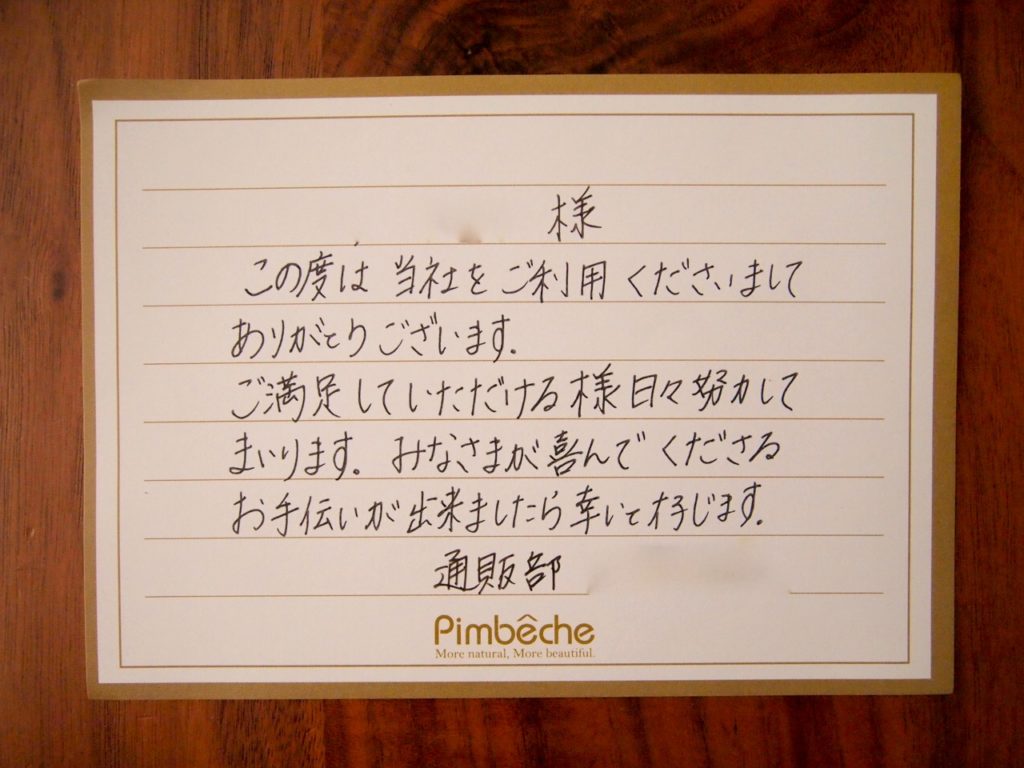 様
この度は 当社を ご利用 くださいまして
ありがとうございます。
ご満足していただける様日々努力して
まいります。 みなさまが喜んで くださる
お手伝いが出来ましたら幸いと存じます。
通販部
Pimbêche
More natural, More beautiful.